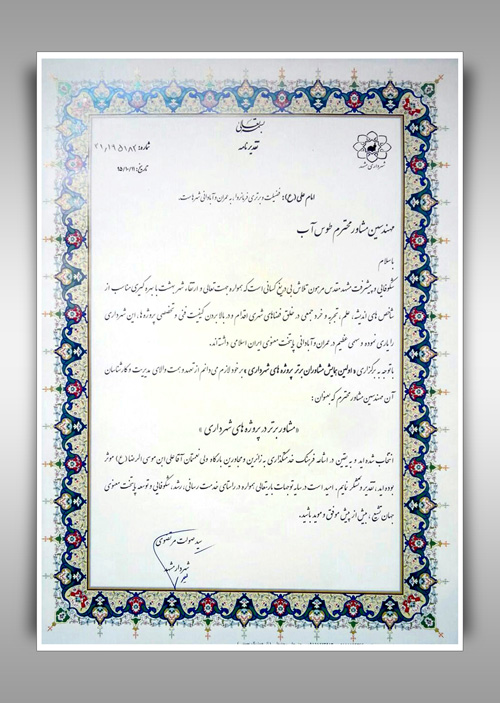 بسمه تعالی
تقدیرنامه
شهرداری مشهد
شماره: ۲۱٫۱۹۵۱۸۲
تاریخ: ۹۵/۱۰/۱۱
امام علی (ع): فضیلت و برتری فرمانروا، به عمران و آبادانی شهرهاست.
مهندسین مشاور محترم طوس آب
باسلام
شکوفایی و پیشرفت مشهد مقدس مرهون تلاش بی دریغ کسانی است که همواره جهت تعالی و ارتقاء شهر بهشت با بهره گیری مناسب از
شاخص های اندیشه، علم، تجربه و خرد جمعی در خلق فضاهای شهری اقدام و در بالا بردن کیفیت فنی و تخصصی پروژه ها، این شهرداری
را یاری نموده و سهمی عظیم در عمران و آبادانی پایتخت معنوی ایران اسلامی داشته‌اند.
با توجه به برگزاری « اولین همایش مشاوران برتر پروژه های شهرداری » بر خود لازم می دانم از تعهد و همت والای مدیریت و کارشناسان
آن مهندسین مشاور محترم که بعنوان :
« مشاور برتر در پروژه های شهرداری »
انتخاب شده اید و به یقین در اشاعه فرهنگ خدمتگذاری به زائرین و مجاورین بارگاه ولی نعمتمان آقا علی ابن موسی الرضا (ع) موثر
بوده اید، تقدیر و تشکر نمایم. امید است در سایه توجهات باریتعالی همواره در راستای خدمت رسانی، رشد، شکوفایی و توسعه پایتخت معنوی
جهان تشیع، بیش از پیش موفق و موید باشید.
سید صولت مرتضوی
شهردار مشهد